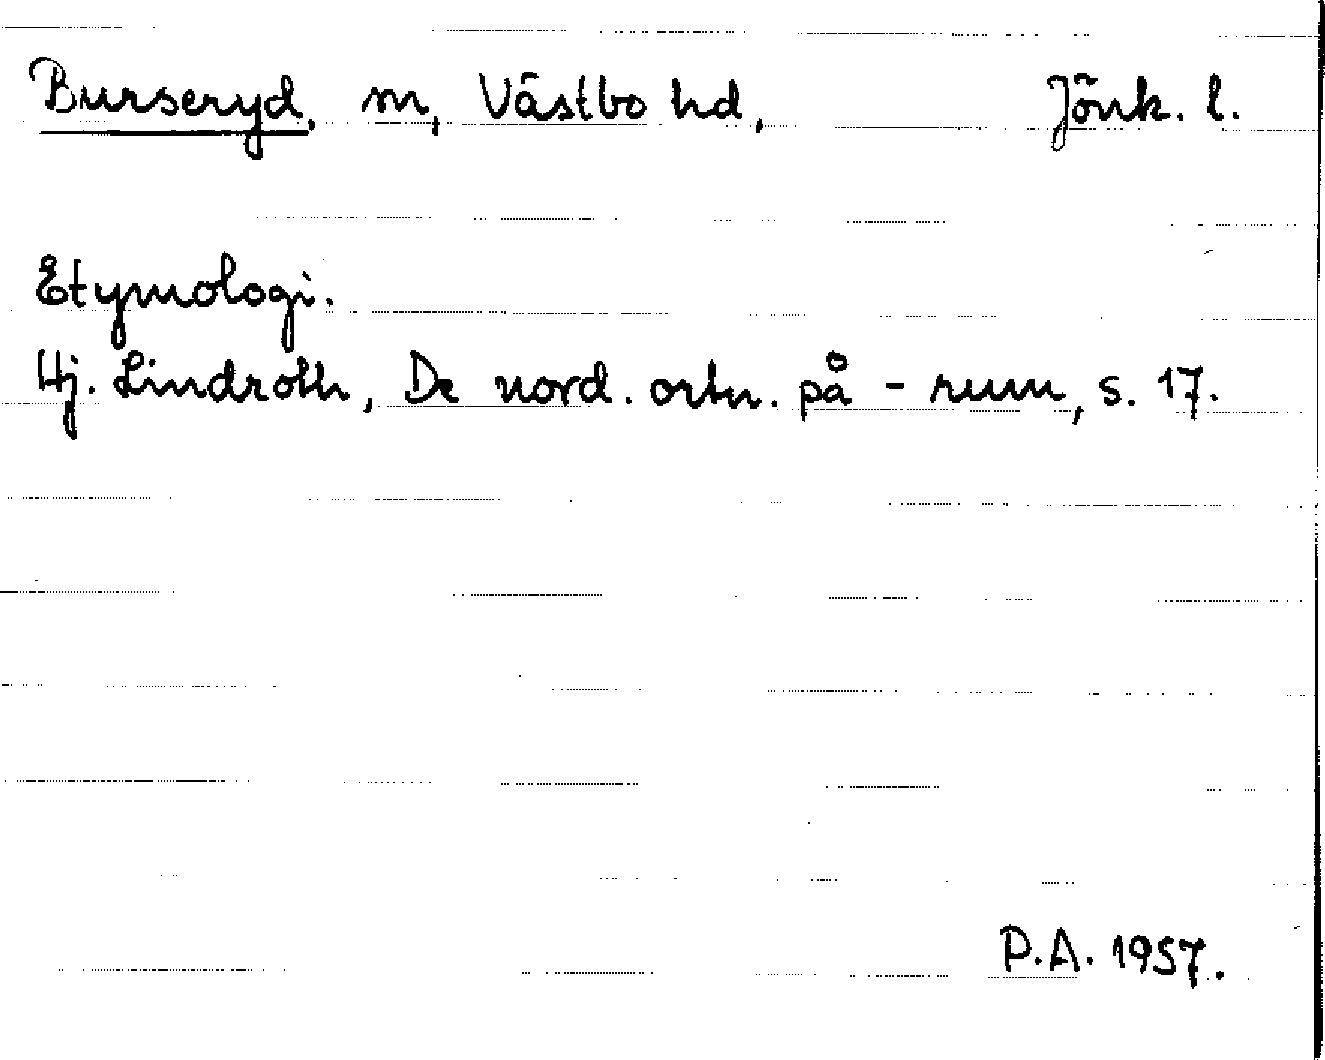 Burseryd, m, Västbo hd, Jönk. l.
Etymologi.
Hj. Lindroth, De nord. ortn. på -rum, s. 17.
P.A. 1957.